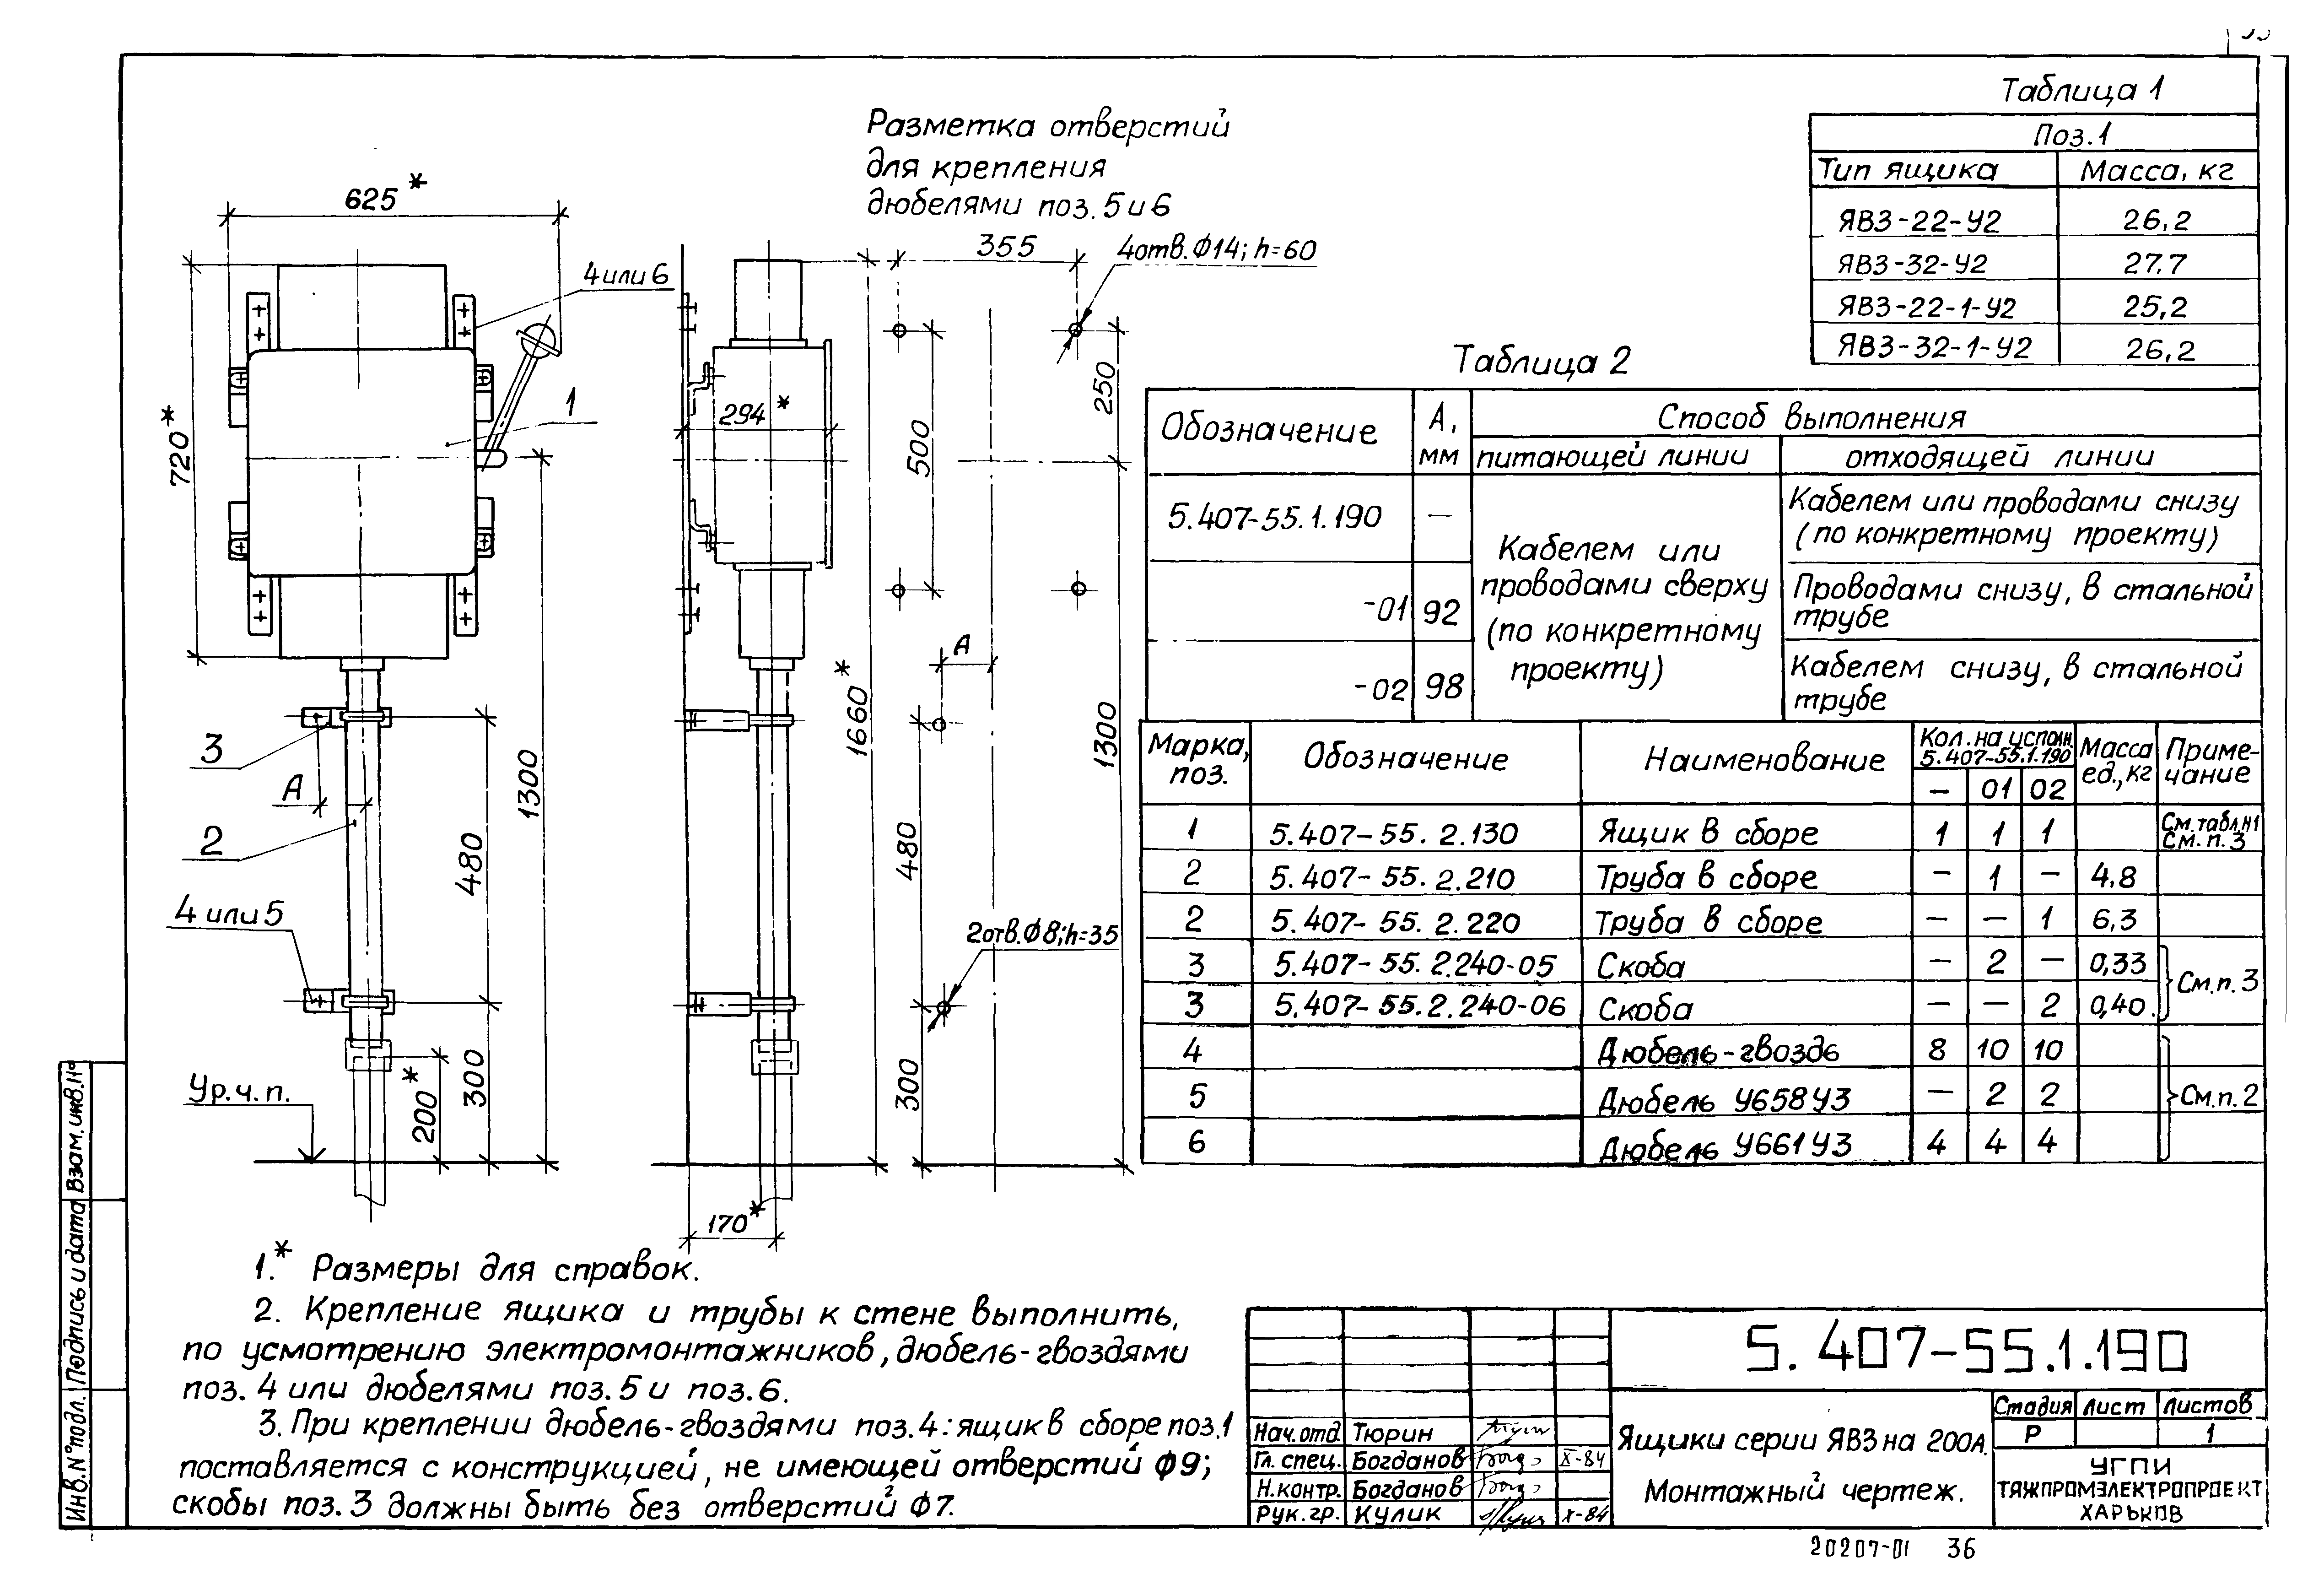 Разметка отверстий
для крепления
дюбелями поз. 5 и 6
625*
720*
4 или 6
1
3
A
2
4 или 5
Ур. ч. п.
480
1300
300
200*
294*
170*
1660*
355
4отв. Ф14; h=60
500
250
A
1300
480
2отв. Ф8; h=35
300
Таблица 1
Поз. 1
Тип ящика Масса, кг
ЯВЗ-22-У2 26,2
ЯВЗ-32-У2 27,7
ЯВЗ-22-1-У2 25,2
ЯВЗ-32-1-У2 26,2
Таблица 2
Обозначение А, мм Способ выполнения
питающей линии отходящей линии
5.407-55.1.190 — Кабелем или проводами снизу
(по конкретному проекту)
Кабелем или
проводами сверху
(по конкретному
проекту)
-01 92 Проводами снизу, в стальной
трубе
-02 98 Кабелем снизу, в стальной
трубе
Марка, поз. Обозначение Наименование Кол. на исполн. 5.407-55.1.190 Масса ед., кг Приме-чание
— 01 02
1 5.407-55.2.130 Ящик в сборе 1 1 1 См. табл. N1 См. п. 3
2 5.407-55.2.210 Труба в сборе — 1 — 4,8
2 5.407-55.2.220 Труба в сборе — — 1 6,3
3 5.407-55.2.240-05 Скоба — 2 — 0,33
3 5.407-55.2.240-06 Скоба — — 2 0,40
См. п. 3
4 Дюбель-гвоздь 8 10 10
5 Дюбель У658У3 — 2 2
6 Дюбель У661У3 4 4 4
См. п. 2
1.* Размеры для справок.
2. Крепление ящика и трубы к стене выполнить,
по усмотрению электромонтажников, дюбель-гвоздями
поз. 4 или дюбелями поз. 5 и поз. 6.
3. При креплении дюбель-гвоздями поз. 4: ящик в сборе поз. 1
поставляется с конструкцией, не имеющей отверстий Ф9;
скобы поз. 3 должны быть без отверстий Ф7.
Взам. инв. №
Подпись и дата
Инв. № подл.
Нач. отд. Тюрин
Гл. спец. Богданов X-84
Н. контр. Богданов
Рук. гр. Кулик X-84
5.407-55.1.190
Ящики серии ЯВЗ на 200А.
Монтажный чертеж.
Стадия Лист Листов
Р 1
УГПИ
ТЯЖПРОМЭЛЕКТРОПРОЕКТ
ХАРЬКОВ
20207-01 36